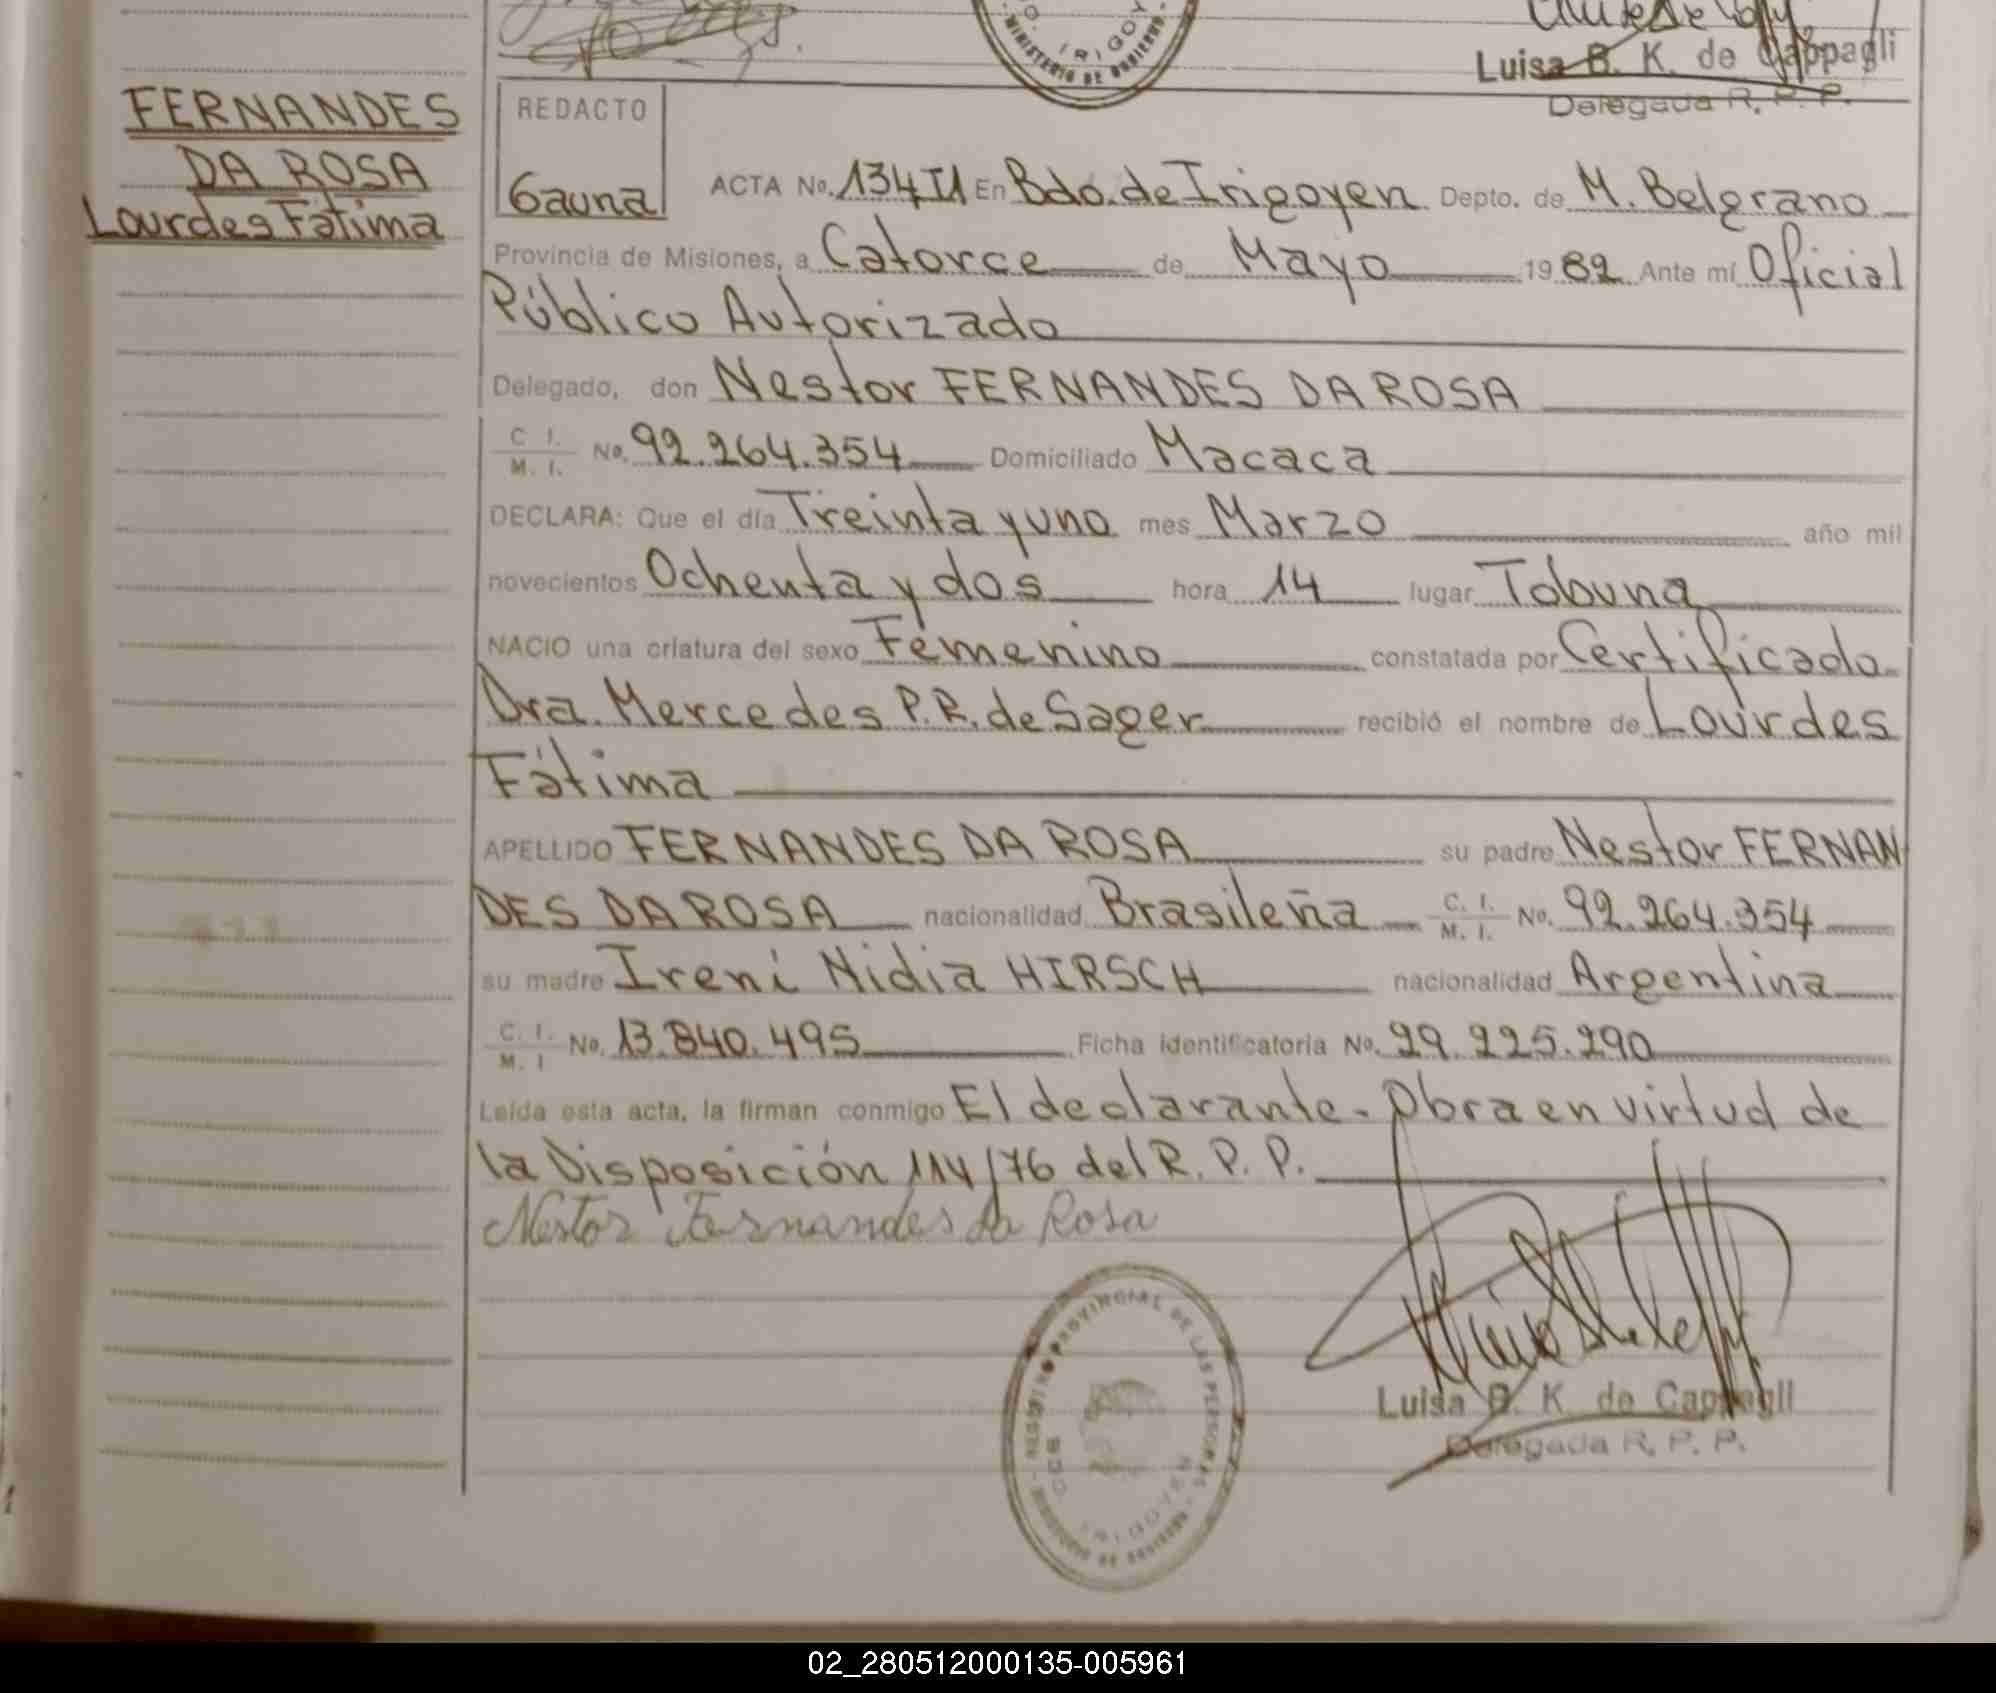 Luisa B. K. de Cappagli
Delegada R. P. P.
FERNANDES
DA ROSA
Lourdes Fátima
REDACTO
Gauna
ACTA No. 134T1 En Bdo. de Irigoyen Depto. de M. Belgrano
Provincia de Misiones, a Catorce de Mayo 1982 Ante mí Oficial
Público Autorizado
Delegado, don Nestor FERNANDES DA ROSA
C. I. / M. I. No. 92.264.354 Domiciliado Macaca
DECLARA: Que el día Treinta y uno mes Marzo año mil
novecientos Ochenta y dos hora 14 lugar Tobuna
NACIO una criatura del sexo Femenino constatada por Certificado
Dra. Mercedes P.R. de Sager recibió el nombre de Lourdes
Fátima
APELLIDO FERNANDES DA ROSA su padre Nestor FERNAN
DES DA ROSA nacionalidad Brasileña C. I. / M. I. No. 92.264.354
su madre Ireni Nidia HIRSCH nacionalidad Argentina
C. I. / M. I No. 13.840.495 Ficha identificatoria No. 29.225.290
Leída esta acta, la firman conmigo El declarante - Obra en virtud de
la Disposición 114/76 del R. P. P.
Nestor Fernandes da Rosa
REGISTRO PROVINCIAL DE LAS PERSONAS
IRIGOYEN
MINISTERIO DE GOBIERNO
Luisa B. K. de Cappagli
Delegada R. P. P.
02_280512000135-005961